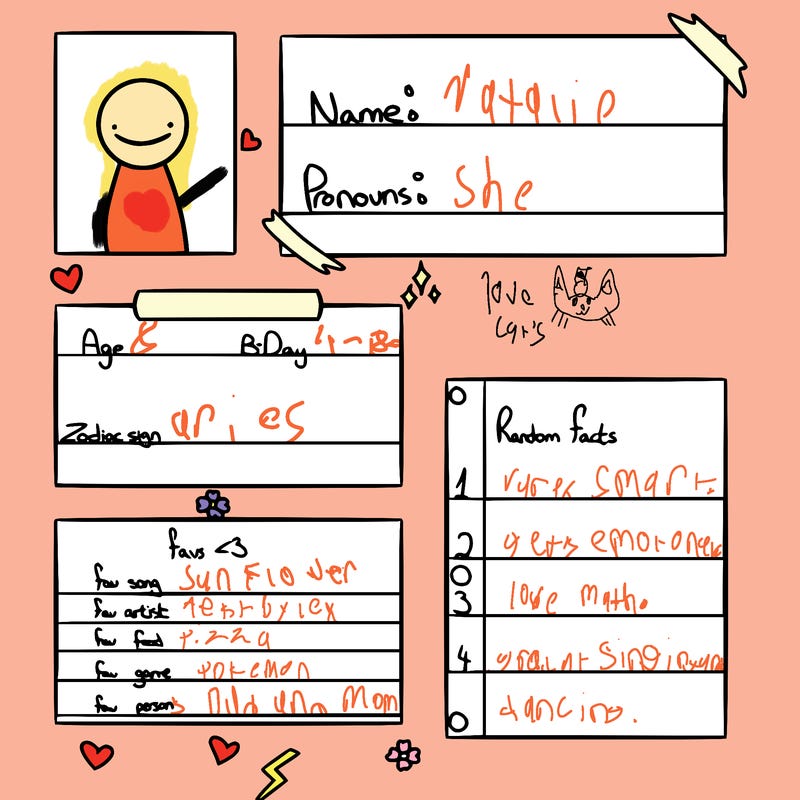 Name: Natalie
Pronouns: She
love
cat's
Age 8 B-Day 4-18
Zodiac sign aries
Random facts
1 smart.
2 gets
3 love math.
4 singing
dancing.
favs <3
fav song Sunflower
fav artist
fav food pizza
fav game pokemon
fav persons Mom